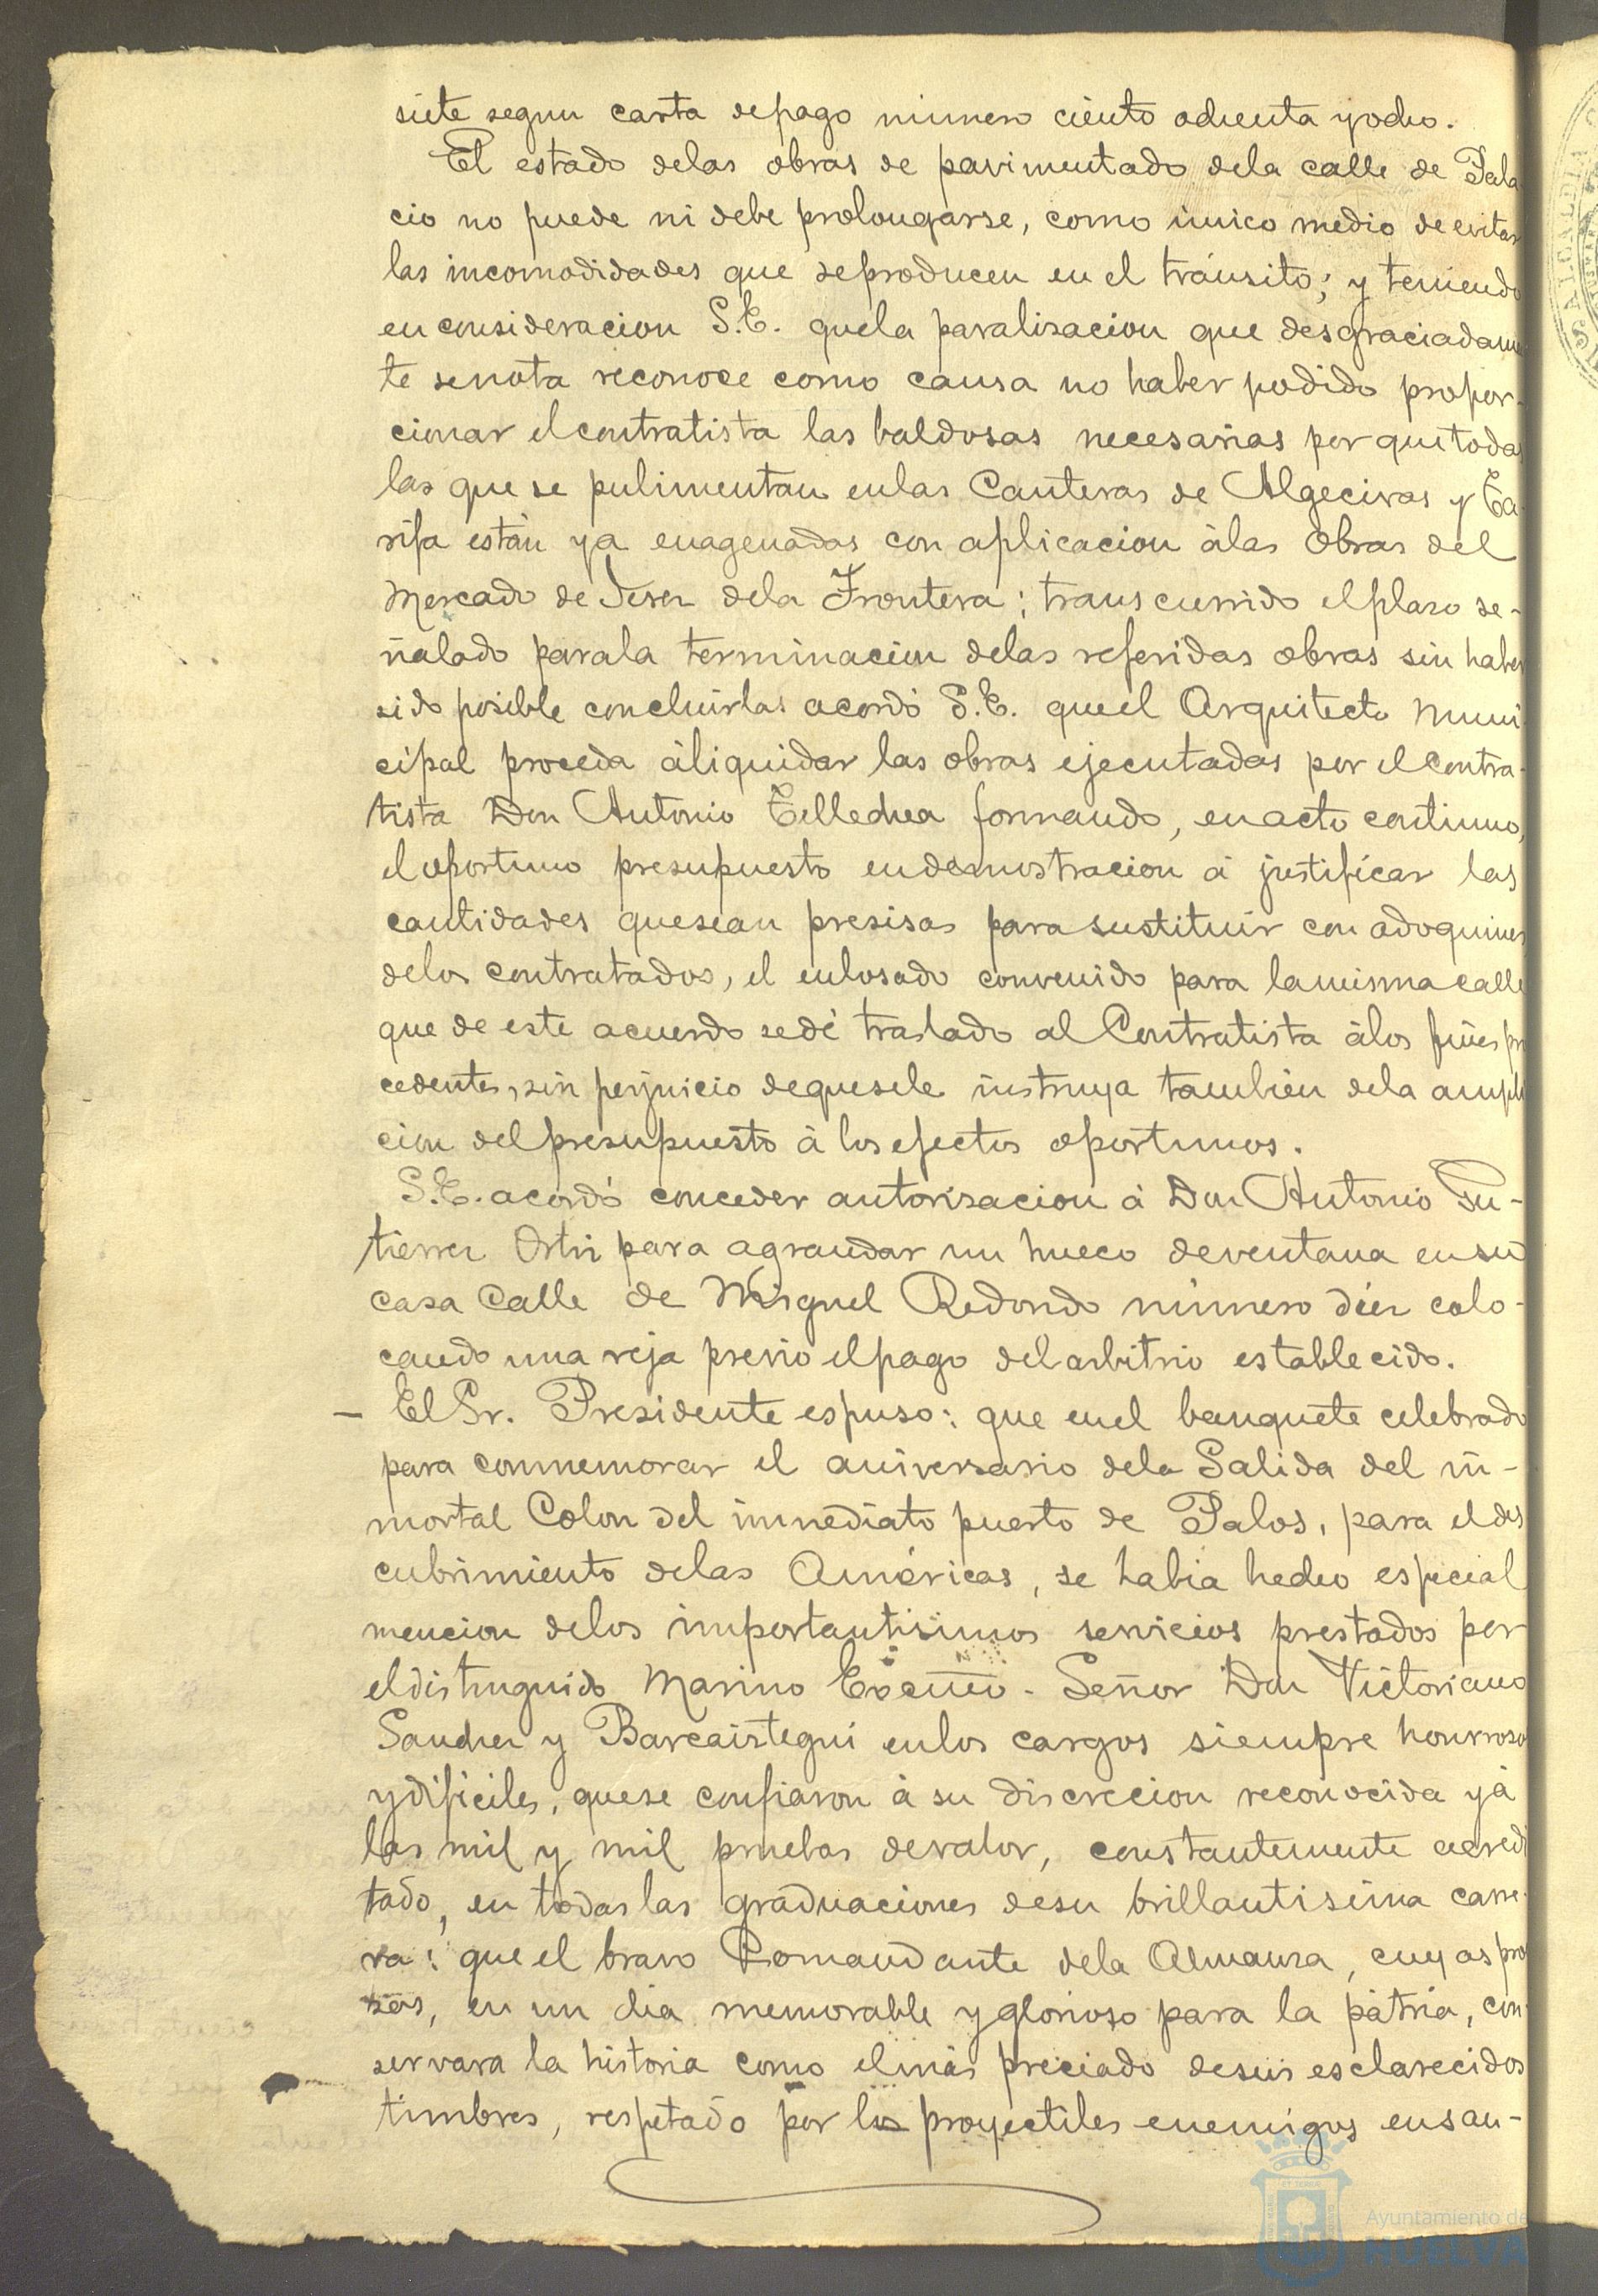 siete segun carta de pago número ciento ochenta y ocho.
El estado de las obras de pavimentado de la calle de Pala
cio no puede ni debe prolongarse, como único medio de evitar
las incomodidades que se producen en el tránsito; y teniendo
en consideracion S.E. que la paralizacion que desgraciadamen
te se nota reconoce como causa no haber podido propor-
cionar el contratista las baldosas necesarias por que todas
las que se pulimentan en las Canteras de Algeciras y Ta-
rifa están ya enagenadas con aplicacion á las Obras del
Mercado de Jerez de la Frontera; transcurrido el plazo se-
ñalado para la terminacion de las referidas obras sin haber
sido posible concluirlas acordó S.E. que el Arquitecto Muni
cipal proceda á liquidar las obras ejecutadas por el Contra-
tista Don Antonio Tellechea formando, en acto continuo,
el oportuno presupuesto en demostracion á justificar las
cantidades que sean presisas para sustituir con adoquines
de los contratados, el enlosado convenido para la misma calle
que de este acuerdo se dé traslado al Contratista á los fines pro
cedentes, sin perjuicio de que se le instruya tambien de la ampli
cion del presupuesto á los efectos oportunos.
S.E. acordó conceder autorizacion á Don Antonio Gu-
tierrez Ortiz para agrandar un hueco de ventana en su
casa Calle de Miguel Redondo número diez colo-
cando una reja previo el pago del arbitrio establecido.
- El Sr. Presidente espuso: que en el banquete celebrado
para conmemorar el aniversario de la Salida del in-
mortal Colon del inmediato puerto de Palos, para el des
cubrimiento de las Américas, se habia hecho especial
mencion de los importantisimos servicios prestados por
el distinguido Marino Excmo. Señor Don Victoriano
Sanchez y Barcaiztegui en los cargos siempre honrosos
y dificiles, que se confiaron á su discrecion reconocida y á
las mil y mil pruebas de valor, constantemente acredi
tado, en todas las graduaciones de su brillantisima carre-
ra: que el bravo Comandante de la Almanza, cuyas proe
zas, en un dia memorable y glorioso para la pátria, con-
servara la historia como el más preciado de sus esclarecidos
timbres, respetado por los proyectiles enemigos en San-
Ayuntamiento de
HUELVA